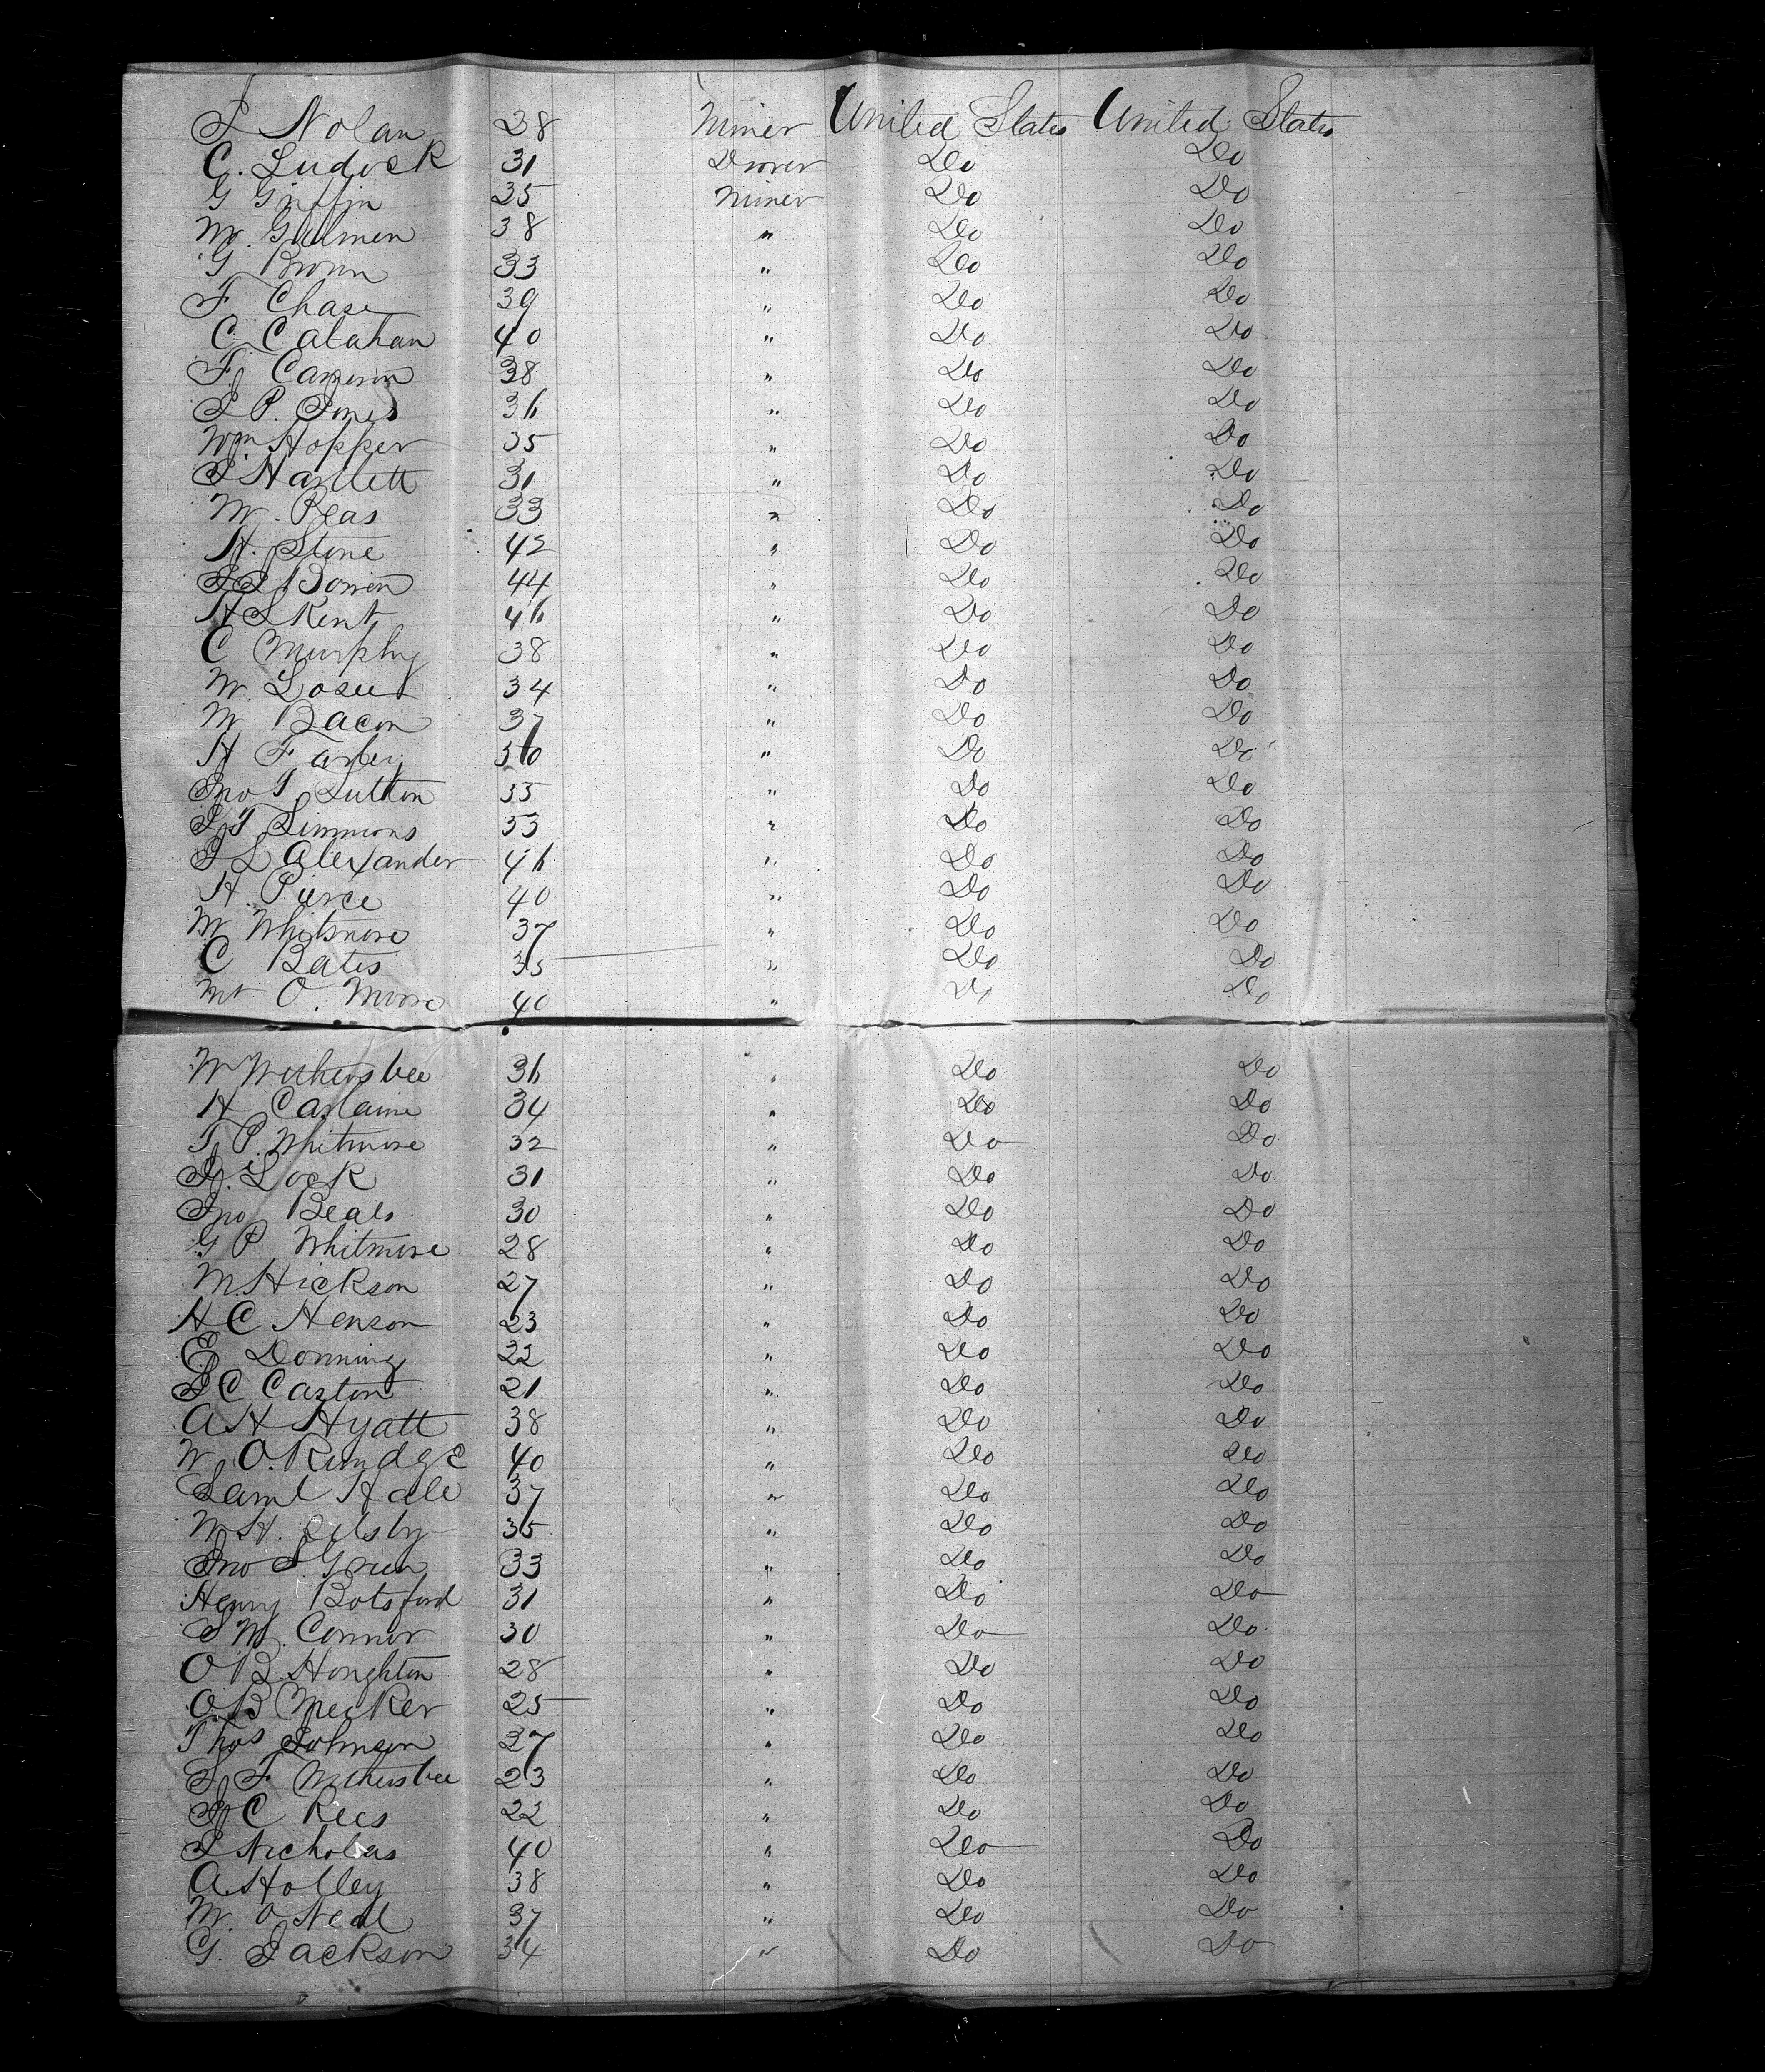 J Nolan 28 Miner United States United States
C. Ludock 31 Drover Do Do
G Griffin 25 Miner Do Do
M. Gillmen 38 " Do Do
G Brown 33 " Do Do
F. Chase 39 " Do Do
C. Calahan 40 " Do Do
F. Cameron 38 " Do Do
J P. Jones 36 " Do Do
Wm Hopper 35 " Do Do
J. Hartlett 31 " Do Do
M. Peas 33 " Do Do
H. Stone 42 " Do Do
J J Bowen 44 " Do Do
H S Kent 46 " Do Do
C Murphy 38 " Do Do
M. 34 " Do Do
M Bacon 37 " Do Do
H Farley 30 " Do Do
Jno T Sutton 35 " Do Do
J T Simmons 33 " Do Do
J L Alexander 46 " Do Do
H. Pierce 40 " Do Do
M Whitmore 37 " Do Do
C Bates 35 " Do Do
O. Moore 40 " Do Do
W Withersbee 36 " Do Do
H Castaine 34 " Do Do
T P. Whitmore 32 " Do Do
J. Lock 31 " Do Do
Jno Beals 30 " Do Do
G P. Whitmore 28 " Do Do
M. Hickson 27 " Do Do
H C Henson 23 " Do Do
E Donning 22 " Do Do
J C Caston 21 " Do Do
A H Hyatt 38 " Do Do
W O. Rundge 40 " Do Do
Saml Hale 37 " Do Do
W H. Selsby 35 " Do Do
Jno S. Green 33 " Do Do
Henry Botsford 31 " Do Do
S M. Connor 30 " Do Do
O B. Houghton 28 " Do Do
O. B Meeker 25 " Do Do
Thos Johnson 27 " Do Do
J F Withersbee 23 " Do Do
J C Rees 22 " Do Do
J Nicholas 40 " Do Do
A Holley 38 " Do Do
M. O Neal 37 " Do Do
G. Jackson 34 " Do Do